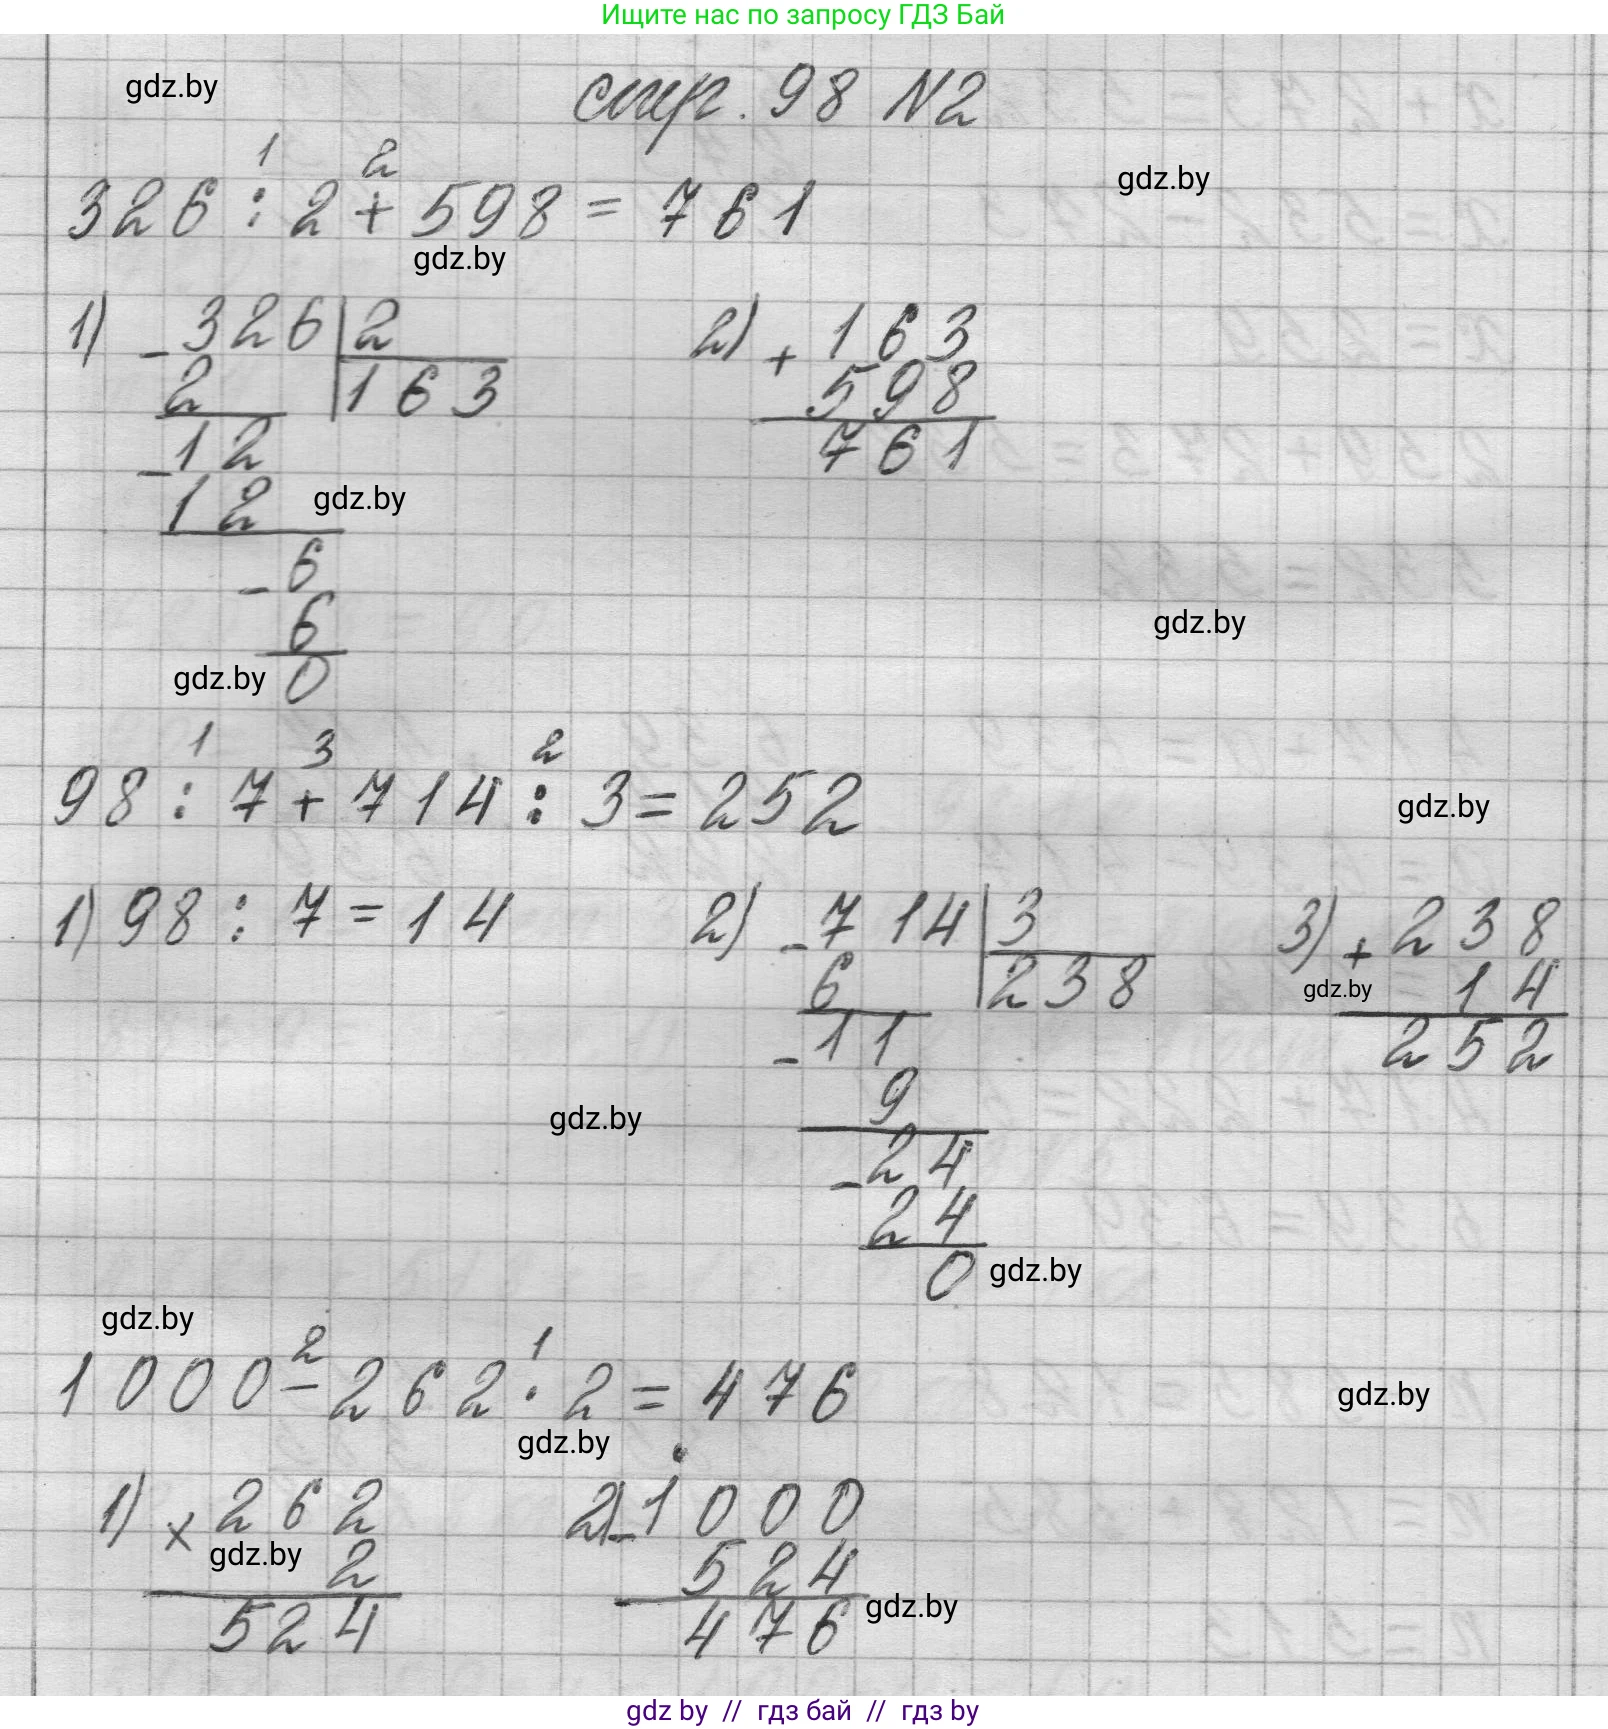 Ищите нас по запросу ГДЗ Бай
gdz.by
стр. 98 №2
1 2
326 : 2 + 598 = 761
gdz.by
gdz.by
1) - 326 | 2
2 163
- 12
12
- 6
6
0
gdz.by
gdz.by
2) + 163
598
761
gdz.by
1 3 2
98 : 7 + 714 : 3 = 252
gdz.by
1) 98 : 7 = 14
2) - 714 | 3
6 238
- 11
9
- 24
24
0
3) + 238
14
252
gdz.by
gdz.by
gdz.by
gdz.by
2 1
1000 - 262 · 2 = 476
gdz.by
gdz.by
1) × 262
2
524
gdz.by
2) - 1000
524
476
gdz.by
gdz by // гдз бай // гдз by